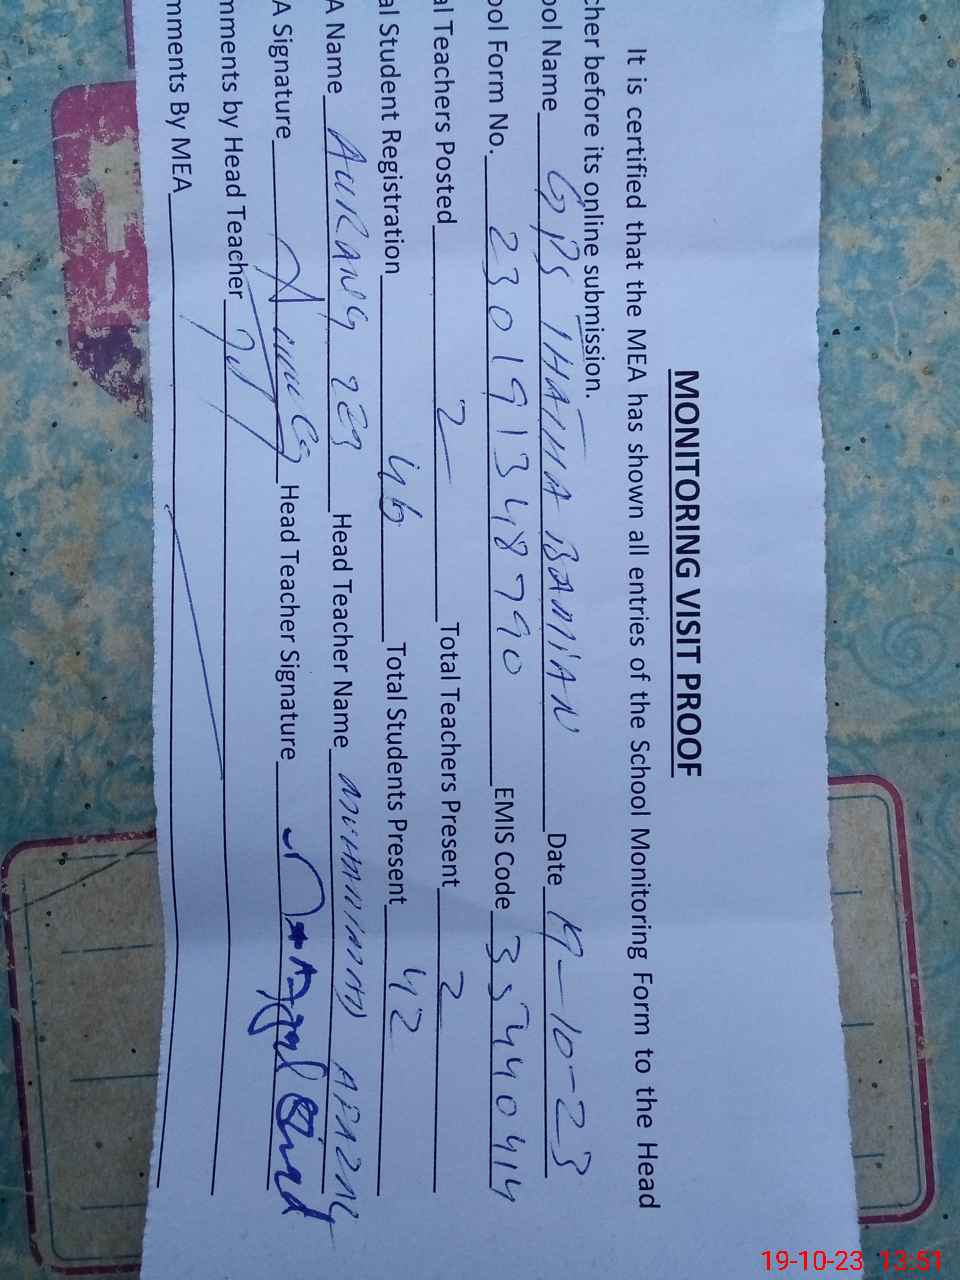 MONITORING VISIT PROOF
It is certified that the MEA has shown all entries of the School Monitoring Form to the Head
cher before its online submission.
ool Name GPS THATHA BAMIAN Date 19-10-23
ool Form No. 230191348790 EMIS Code 35440414
al Teachers Posted 2 Total Teachers Present 2
al Student Registration 46 Total Students Present 42
A Name AURANG ZEB Head Teacher Name MUHAMMAD
A Signature Head Teacher Signature
mments by Head Teacher
mments By MEA
19-10-23 13:51